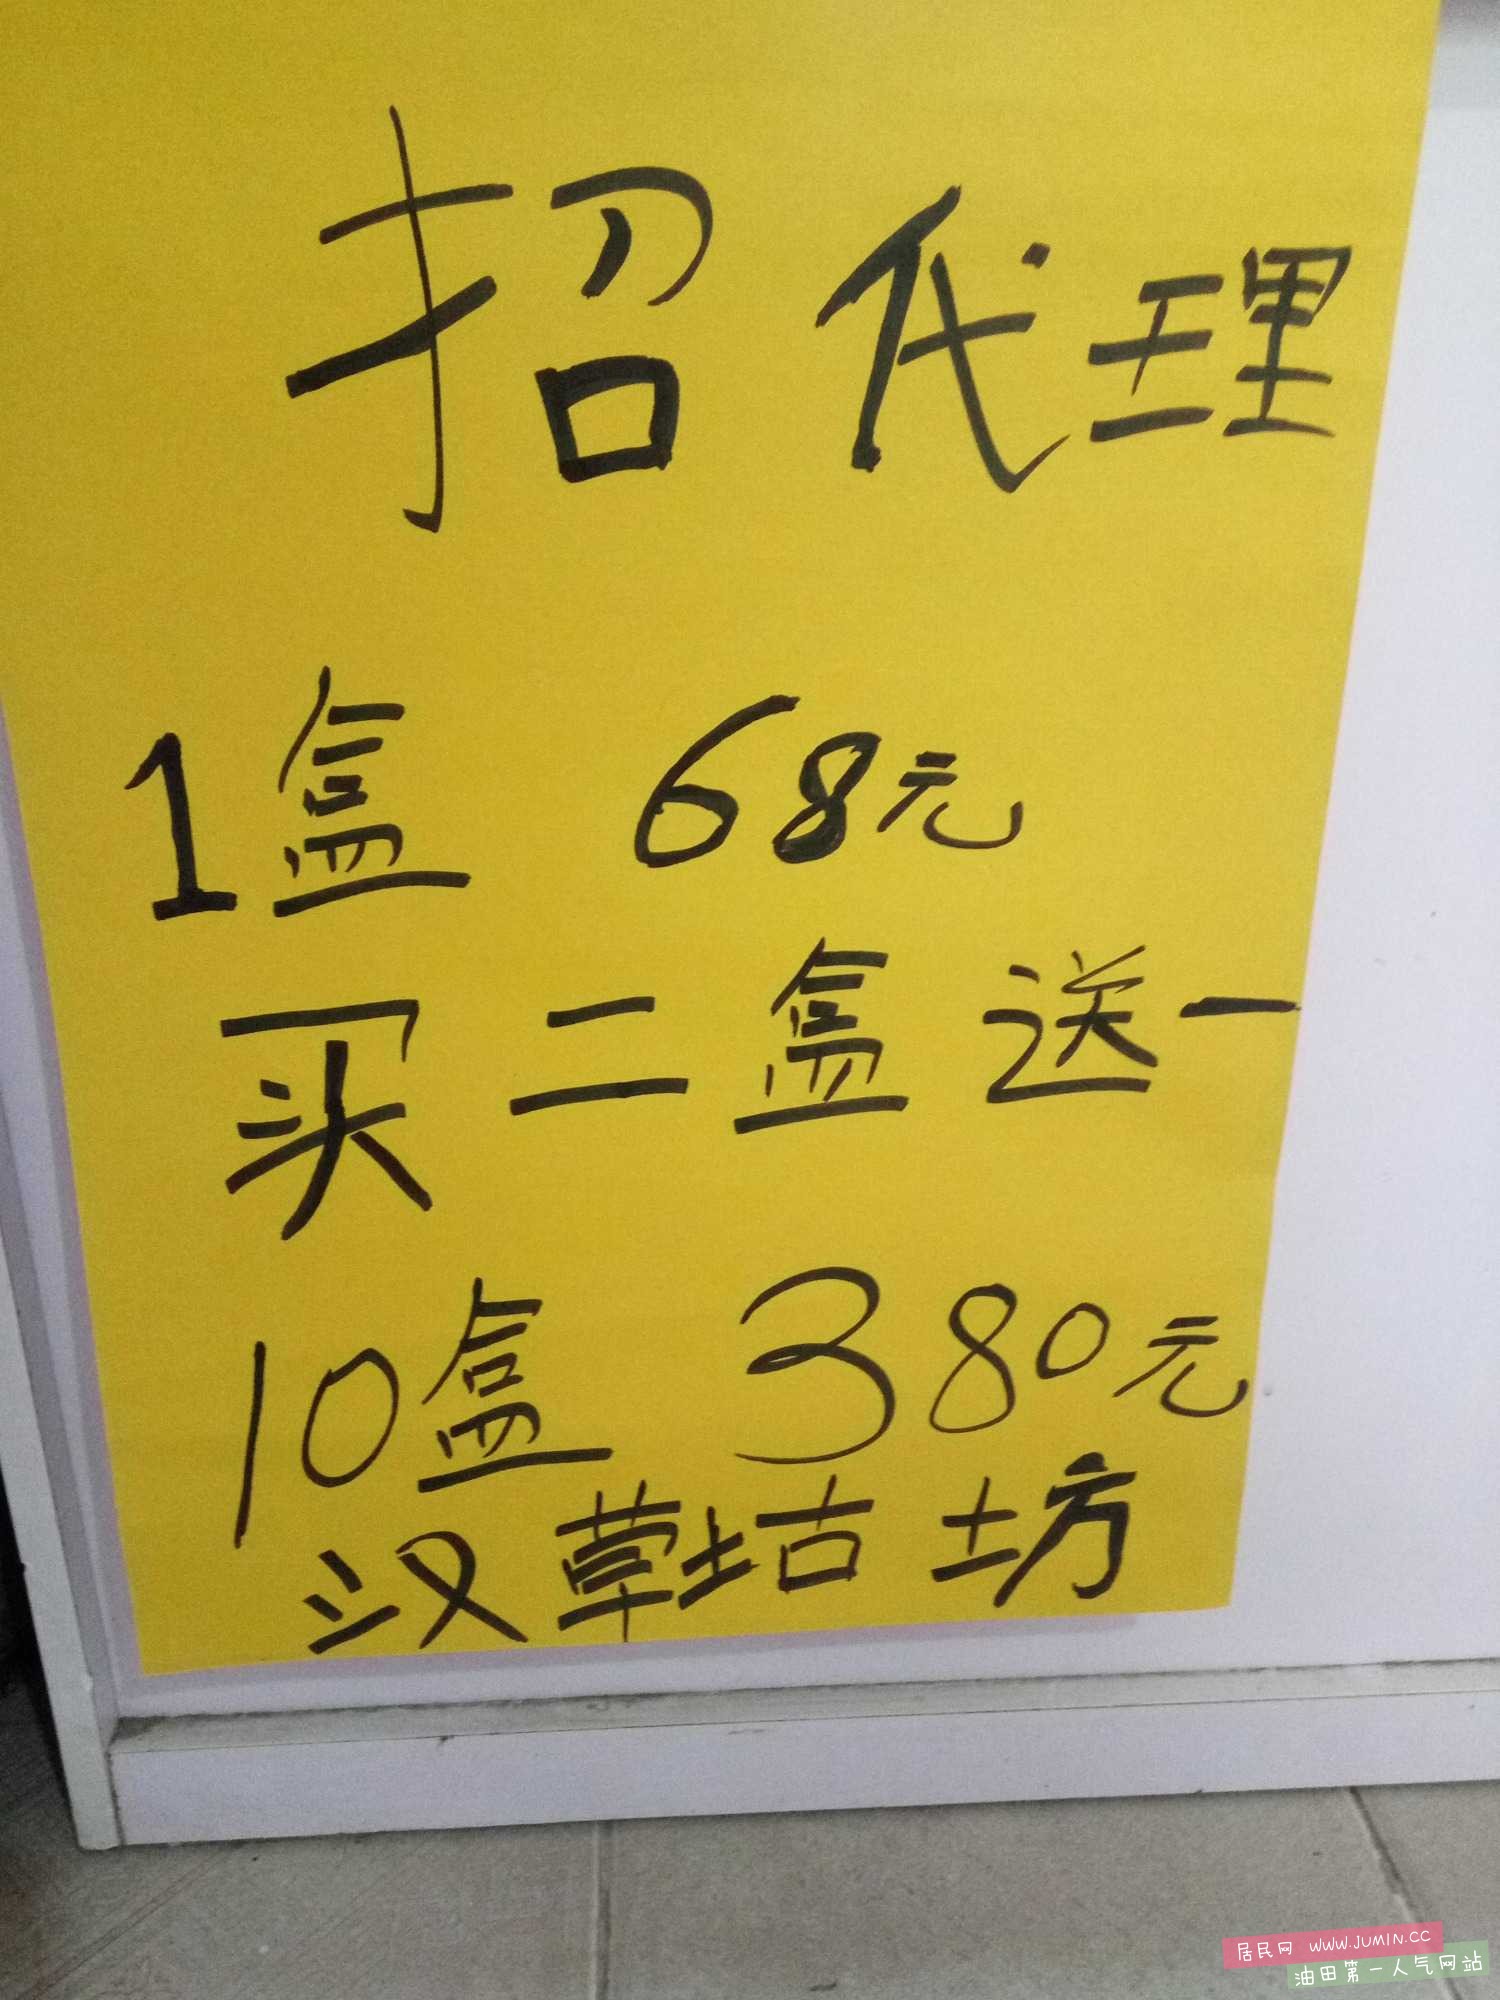 招代理
1盒 68元
买二盒送一
10盒 380元
汉草结坊
居民网 WWW.JUMIN.CC
油田第一人气网站